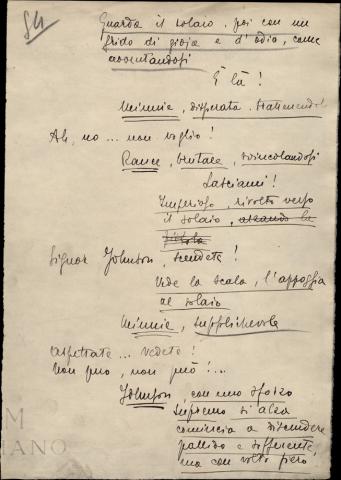 84
Guarda il solaio, poi con un
grido di gioja e d'odio, come
avventandosi
È là!
Minnie, disperata, trattenendolo
Ah, no... non voglio!
Rance, brutale, svincolandosi
Lasciami!
Imperioso, rivolto verso
il solaio, alzando la
pistola
Signor Johnson, scendete!
Vede la scala, l'appoggia
al solaio
Minnie, supplichevole
Aspettate... vedete!
Non può, non può!...
Johnson, con uno sforzo
supremo si alza
comincia a discendere
pallido e sofferente,
ma con volto fiero
M
IANO